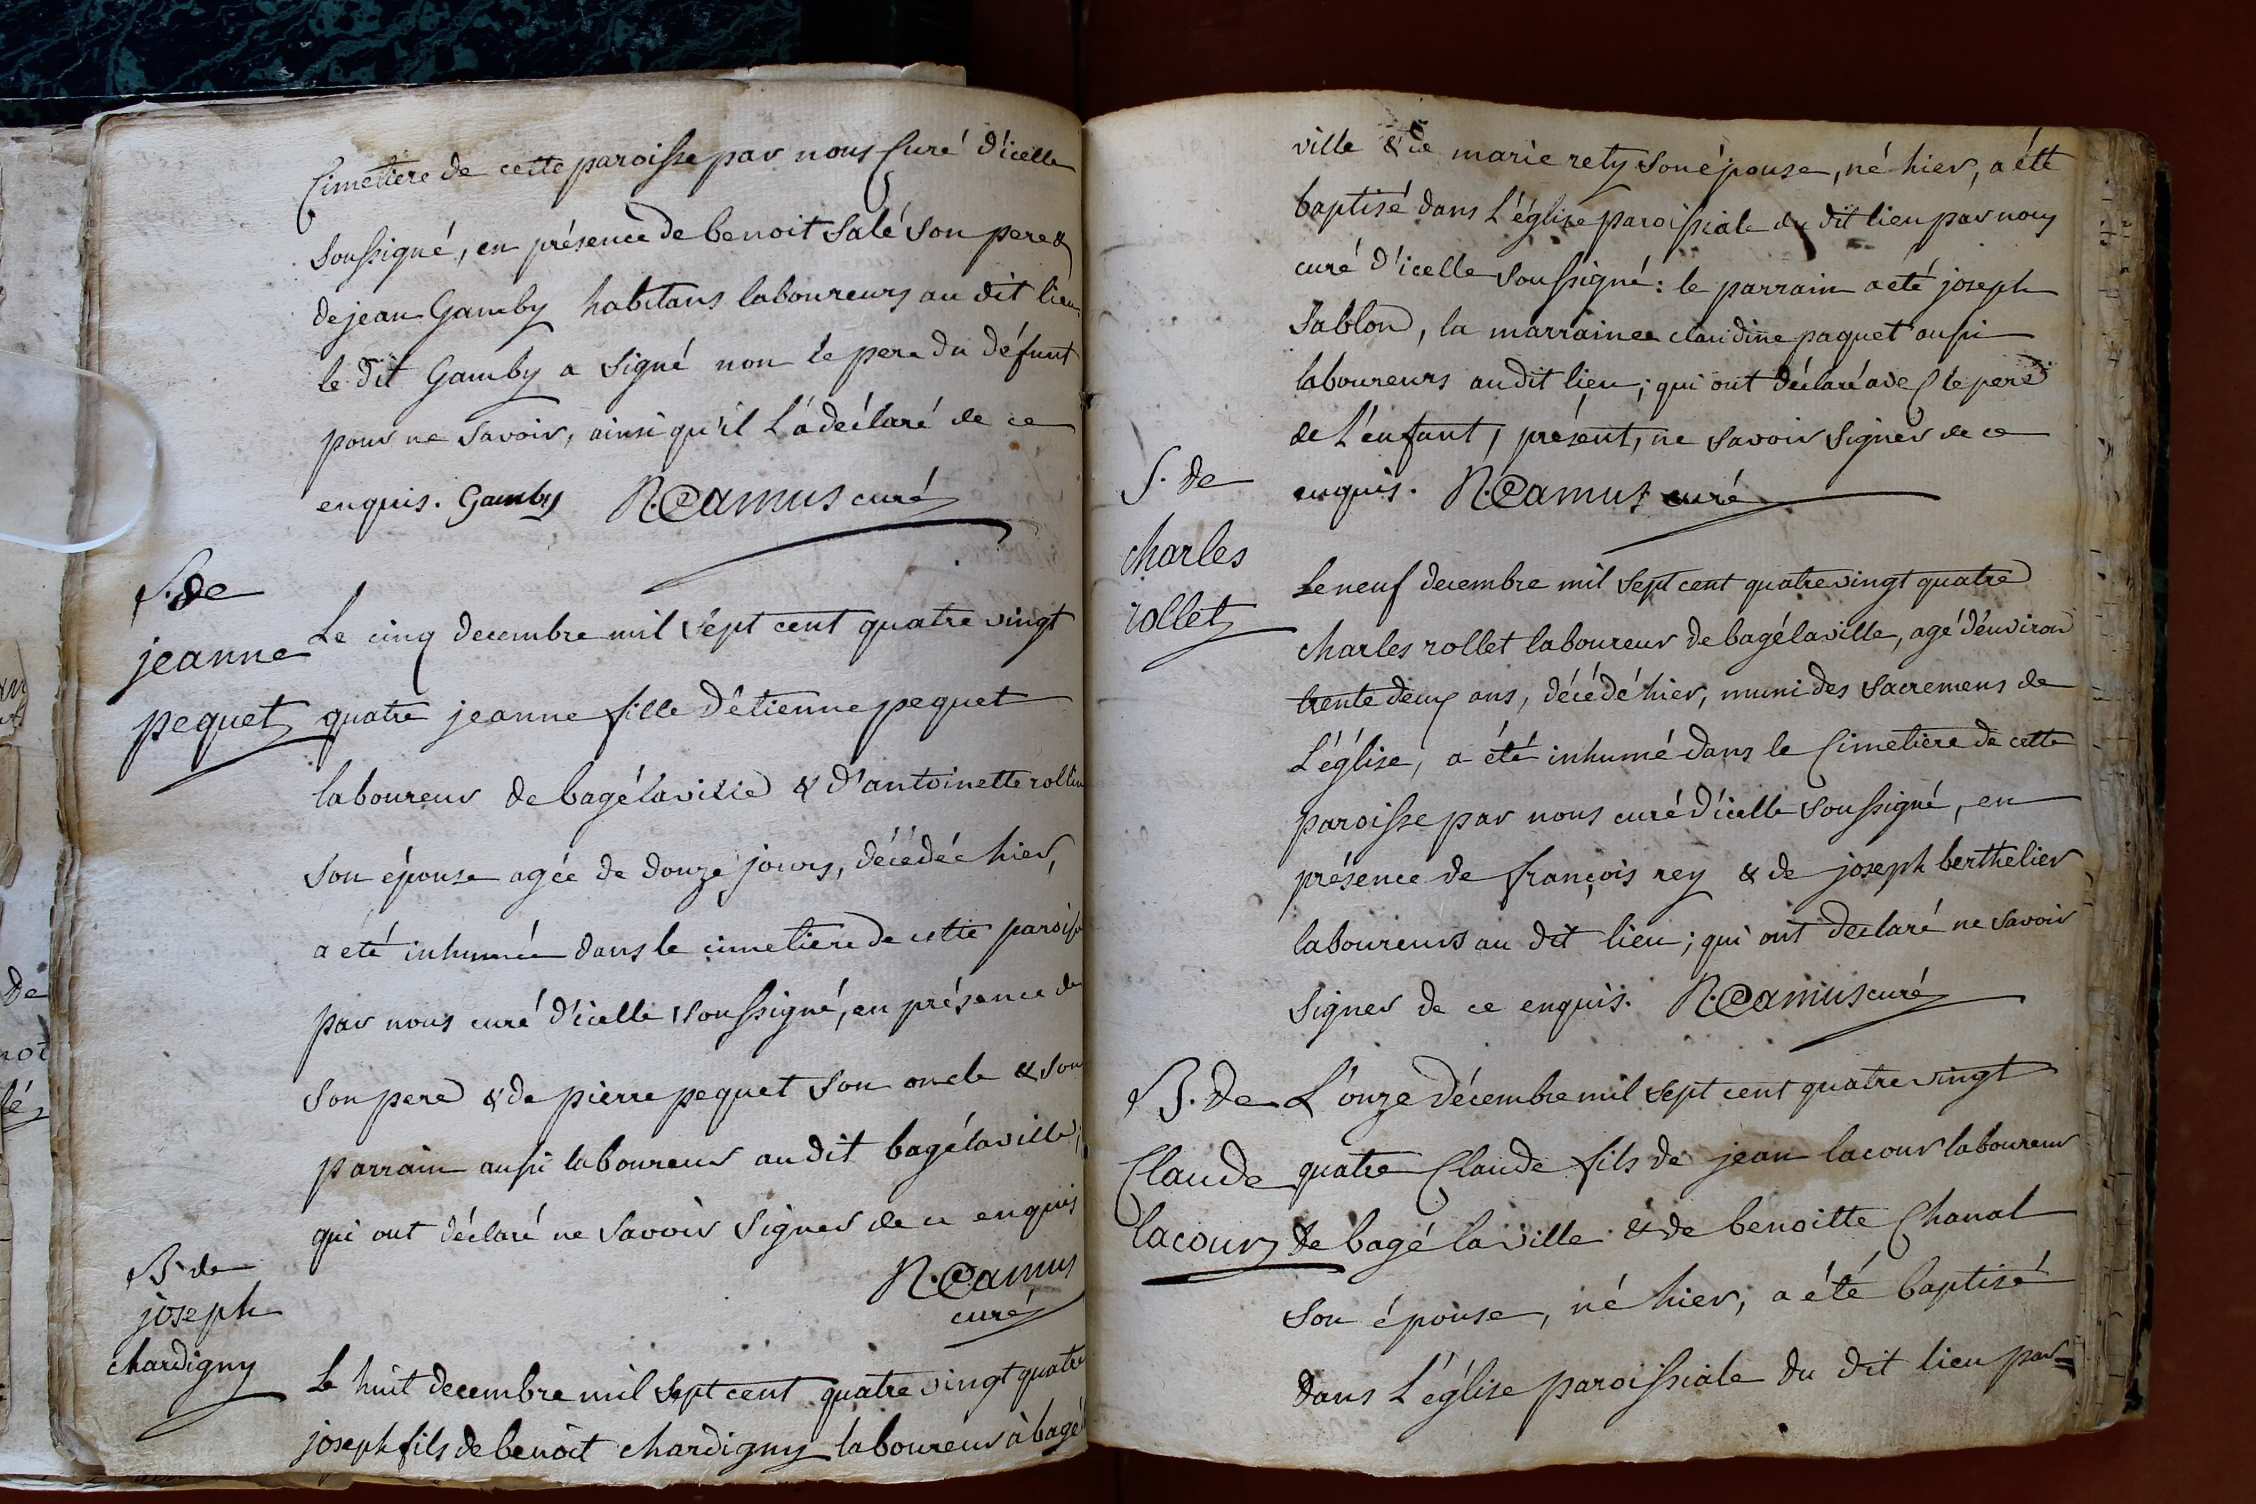 Cimetiere de cette paroisse par nous Curé d'icelle
soussigné, en présence de benoit Salé son pere &
de jean Gamby habitans laboureurs au dit lieu
le dit Gamby a signé non le pere du défunt
pour ne savoir, ainsi qu'il l'a déclaré de ce
enquis. Gamby N. Camus curé
S. de
jeanne
pequet
Le cinq decembre mil sept cent quatre vingt
quatre jeanne fille d'étienne pequet
laboureur de bagé la ville & d'antoinette rollin
son épouse agée de douze jours, décédée hier,
a été inhumée dans le cimetiere de cette paroisse
par nous curé d'icelle soussigné, en présence de
son pere & de pierre pequet son oncle & son
parrain aussi laboureur au dit bagé la ville;
qui ont déclaré ne savoir signer de ce enquis
N. Camus
curé
B. de
joseph
chardigny
Le huit decembre mil sept cent quatre vingt quatre
joseph fils de benoit chardigny laboureur à bagé
ville & de marie rety son épouse, né hier, a été
baptisé dans l'église paroissiale du dit lieu par nous
curé d'icelle soussigné: le parrain a été joseph
Sablon, la marraine claudine paquet aussi
laboureurs au dit lieu; qui ont déclaré avec le pere
de l'enfant, présent, ne savoir signer de ce
enquis. N. Camus curé
S. de
charles
rollet
Le neuf decembre mil sept cent quatre vingt quatre
charles rollet laboureur de bagé la ville, agé d'environ
trente deux ans, décédé hier, muni des sacremens de
l'église, a été inhumé dans le Cimetiere de cette
paroisse par nous curé d'icelle soussigné, en
présence de françois rey & de joseph berthelier
laboureurs au dit lieu; qui ont declaré ne savoir
signer de ce enquis. N. Camus curé
B. de
Claude
lacour
L'onze décembre mil sept cent quatre vingt
quatre Claude fils de jean lacour laboureur
de bagé la ville & de benoitte Chanal
son épouse, né hier, a été baptisé
dans l'église paroissiale du dit lieu par